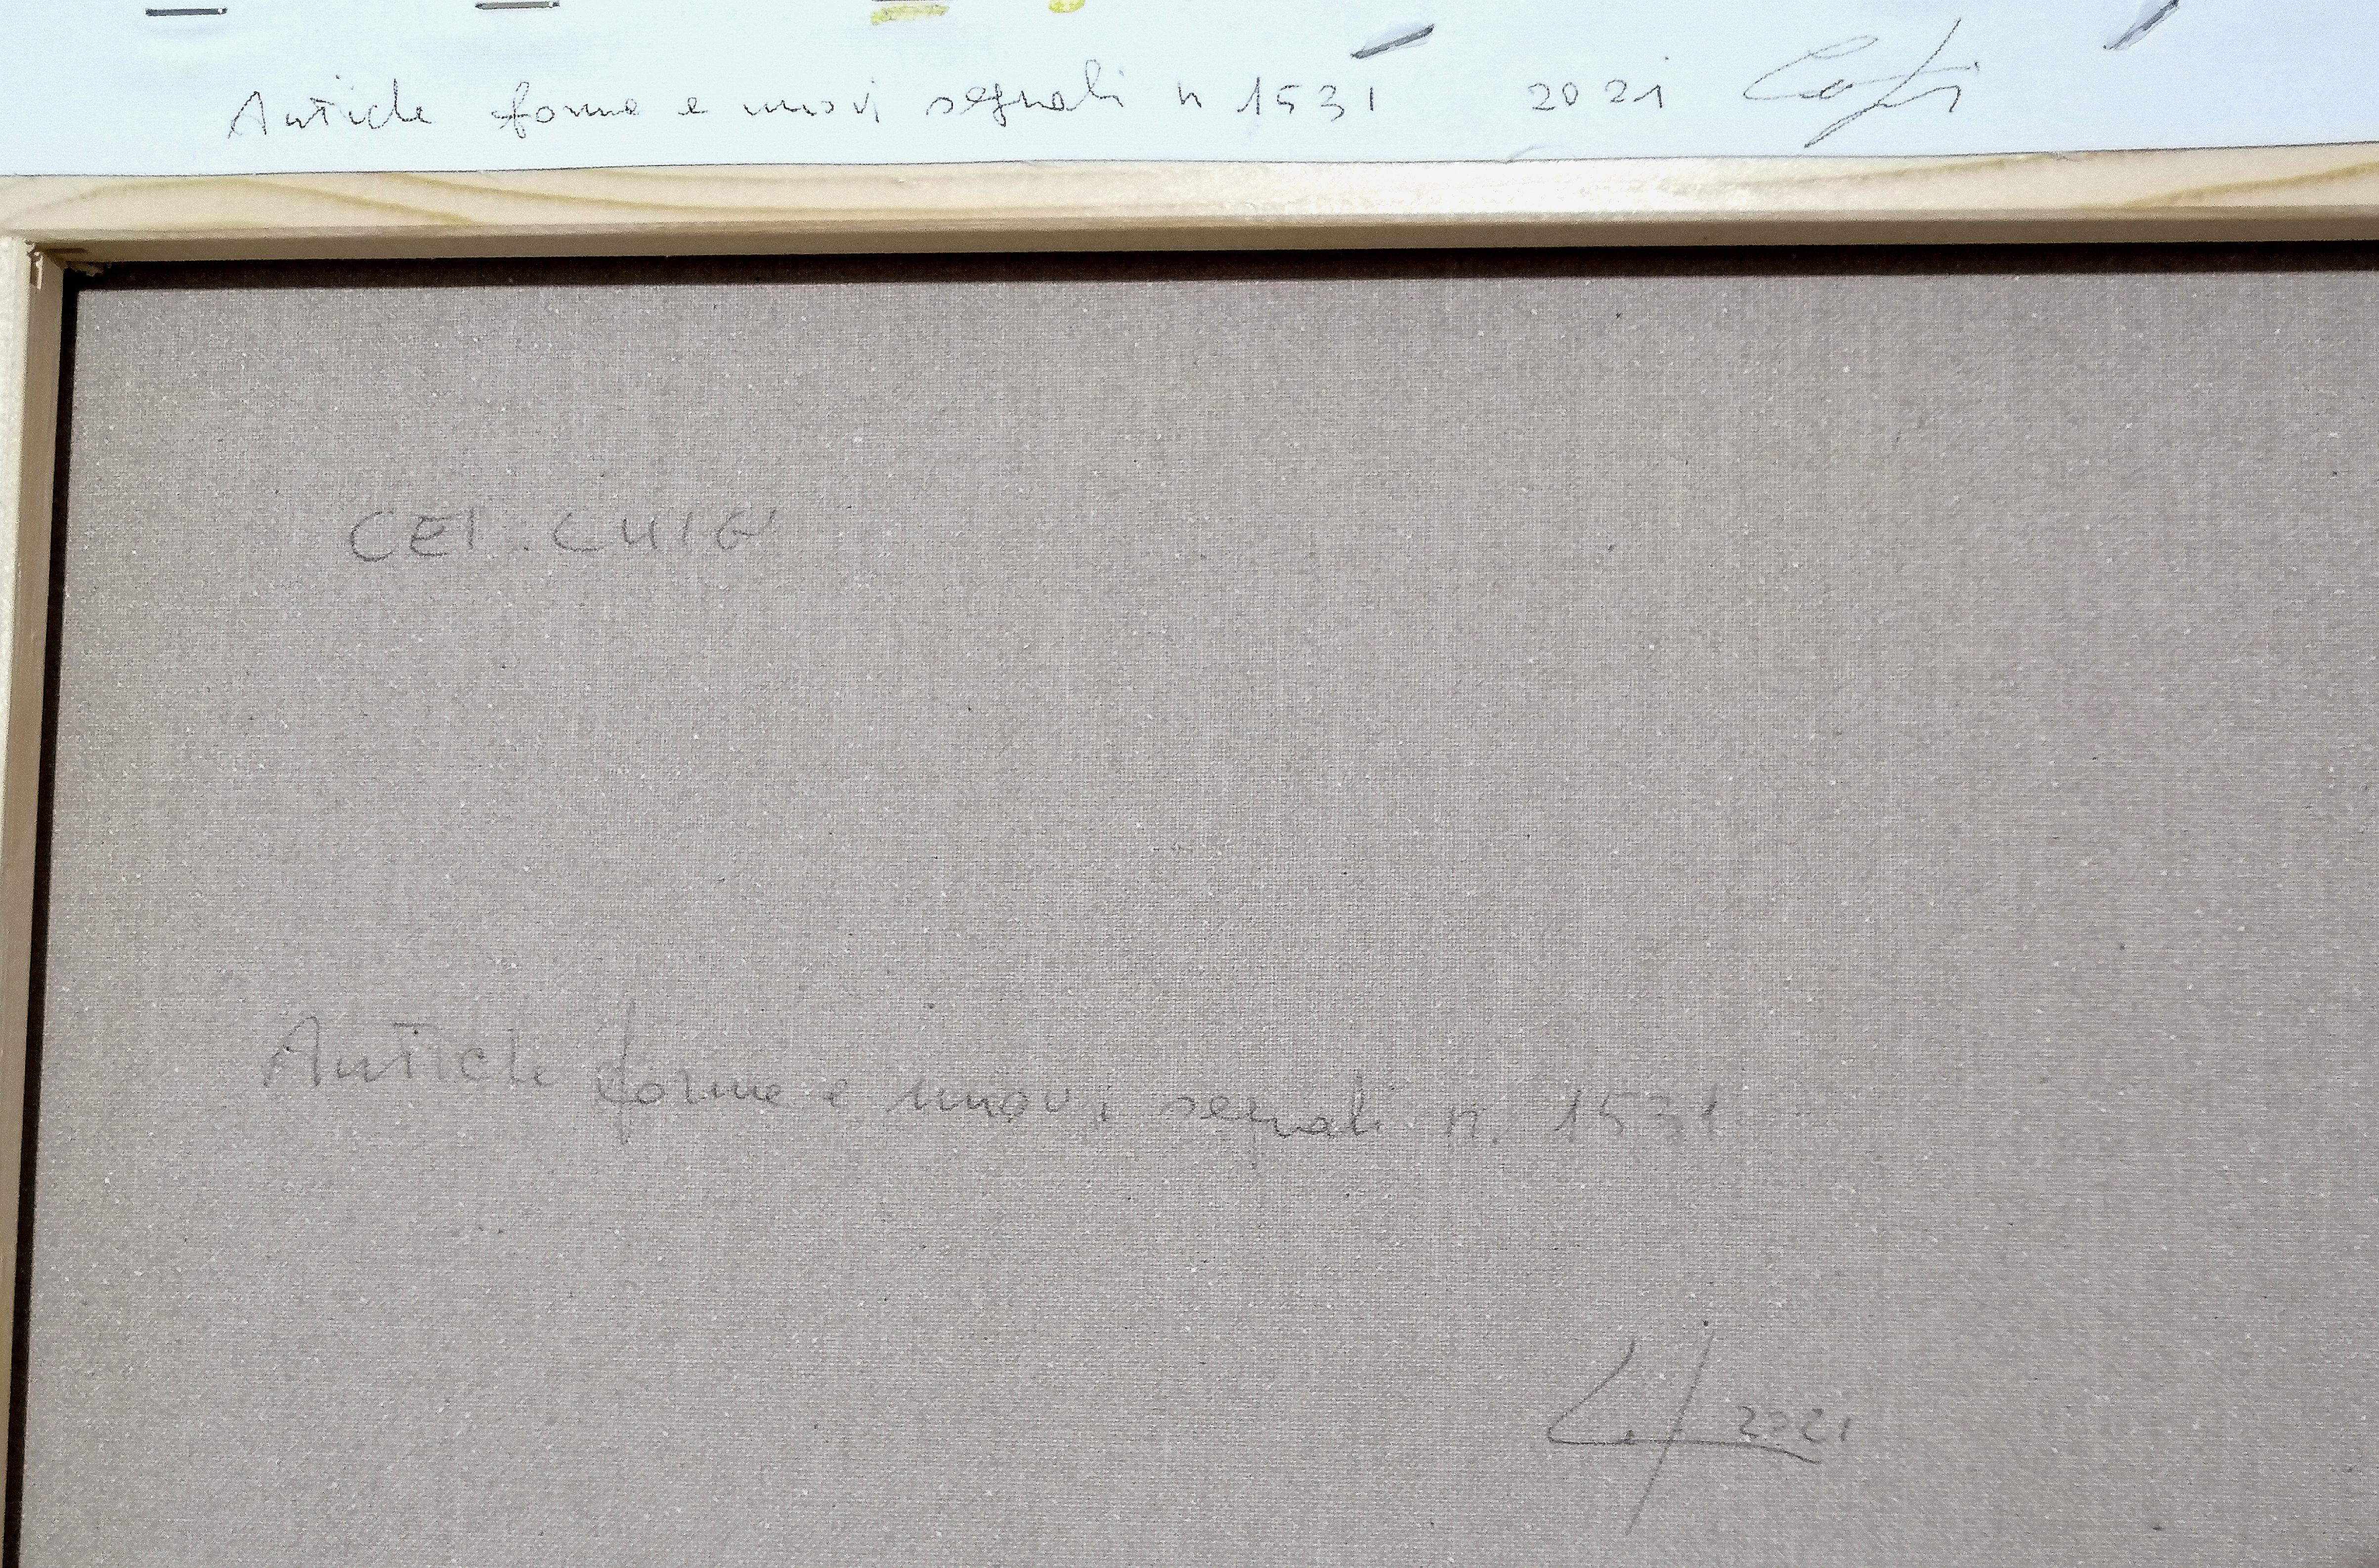 Antiche forme e nuovi segnali n 1531 2021
CEI.CH16
Antiche forme e nuovi segnali n. 1531
2021